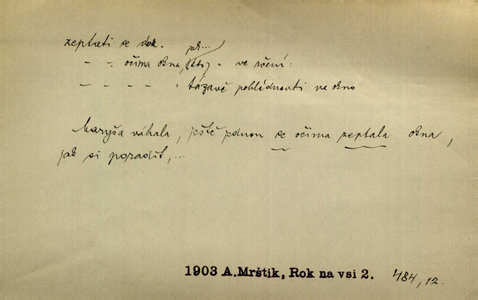 zeptati se dok.
– – očima okna (jak...) – ve rčení:
– – – – : tázavě pohlédnouti na okno
Maryša váhala, ještě jednou se očima zeptala okna,
jak si poradit,...
1903 A.Mrštík, Rok na vsi 2. 484,12.